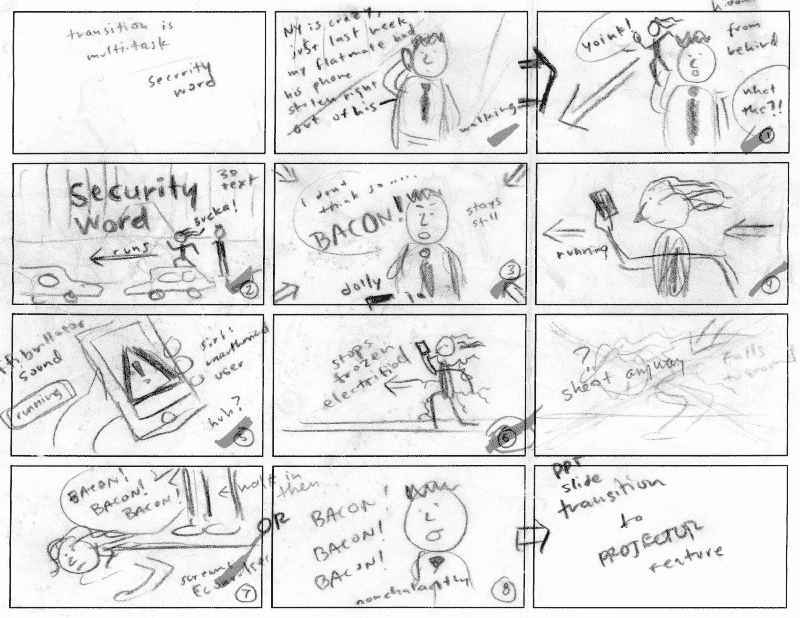 transition is
multi-task
security
word
NY is crazy,
just last week
my flatmate had
his phone
stolen right
out of his
walking
yoink!
from
behind
what
the?!
1
Security
word
3D
text
sucka!
runs
2
I don't
think so.....
BACON!
stays
still
dolly
in
3
running
4
sound
running
siri:
unauthorized
user
huh?
5
stops
frozen
electrified
6
?
shoot anyway
falls
to ground
BACON!
BACON!
BACON!
hold
screams
7
OR
in
then
BACON!
BACON!
BACON!
nonchalantly
8
PPT
slide
transition
to
PROJECTOR
feature